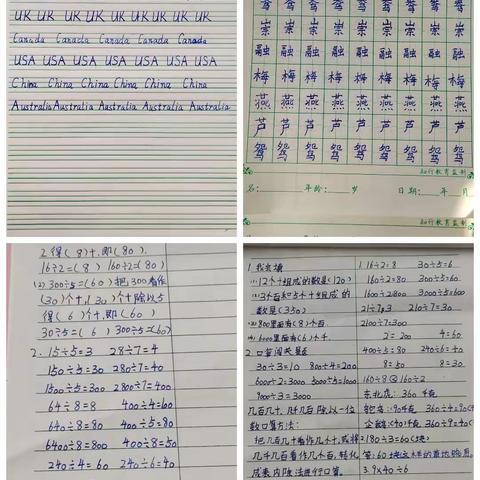 UK UK UK UK UK UK UK UK UK
Canada Canada Canada Canada Canada
USA USA USA USA USA USA USA
China China China China China China
Australia Australia Australia Australia Australia
鸳 鸳 鸳 鸳 鸳 鸳 鸳 鸳
崇 崇 崇 崇 崇 崇 崇 崇
融 融 融 融 融 融 融 融
梅 梅 梅 梅 梅 梅 梅 梅
燕 燕 燕 燕 燕 燕 燕 燕
芦 芦 芦 芦 芦 芦 芦 芦
鸳 鸳 鸳 鸳 鸳 鸳 鸳 鸳
知行教育监制
名: 年龄: 岁 日期: 年 月
知行教育监制
2.得(8)十,即(80).
16÷2=(8) 160÷2=(80)
(2)300÷5=(60)把300看作
(30)个十,(30)个十除以5
得(6)个十,即(60)
30÷5=(6) 300÷5=(60)
2.15÷5=3 28÷7=4
150÷5=30 280÷7=40
1500÷5=300 2800÷7=400
64÷8=8 400÷4=100
640÷8=80 400÷5=80
6400÷8=800 400÷8=50
240÷4=60 240÷6=40
1.我会填
(1)12个十组成的数是(120)
(2)3个百和5个十组成的
数是(350)
(3)800里面有(8)个百.
(4)6000里面有(6)个千.
2.口算闯关
30÷3=10 800÷4=200
6000÷2=3000 5000÷5=1000
9000÷3=3000
几百几十、几千几百除以一位
数口算方法:
把几百几十看作几个十,或将
几千几百看作几个百,转化
成表内除法进行口算.
1.16÷2=8 30÷5=6
160÷2=80 300÷5=60
1600÷2=800 3000÷5=600
21÷7=3 210÷7=30
2100÷7=300
2=200 4=60
400÷5=80 240÷6=40
8=50 8=30
160÷8 160÷2
东北虎: 360千克
鸵鸟:90千克 360÷4=90
企鹅:40千克 360÷9=40
2.180÷3=60(块)
答:60块这样的
3.9×40÷6